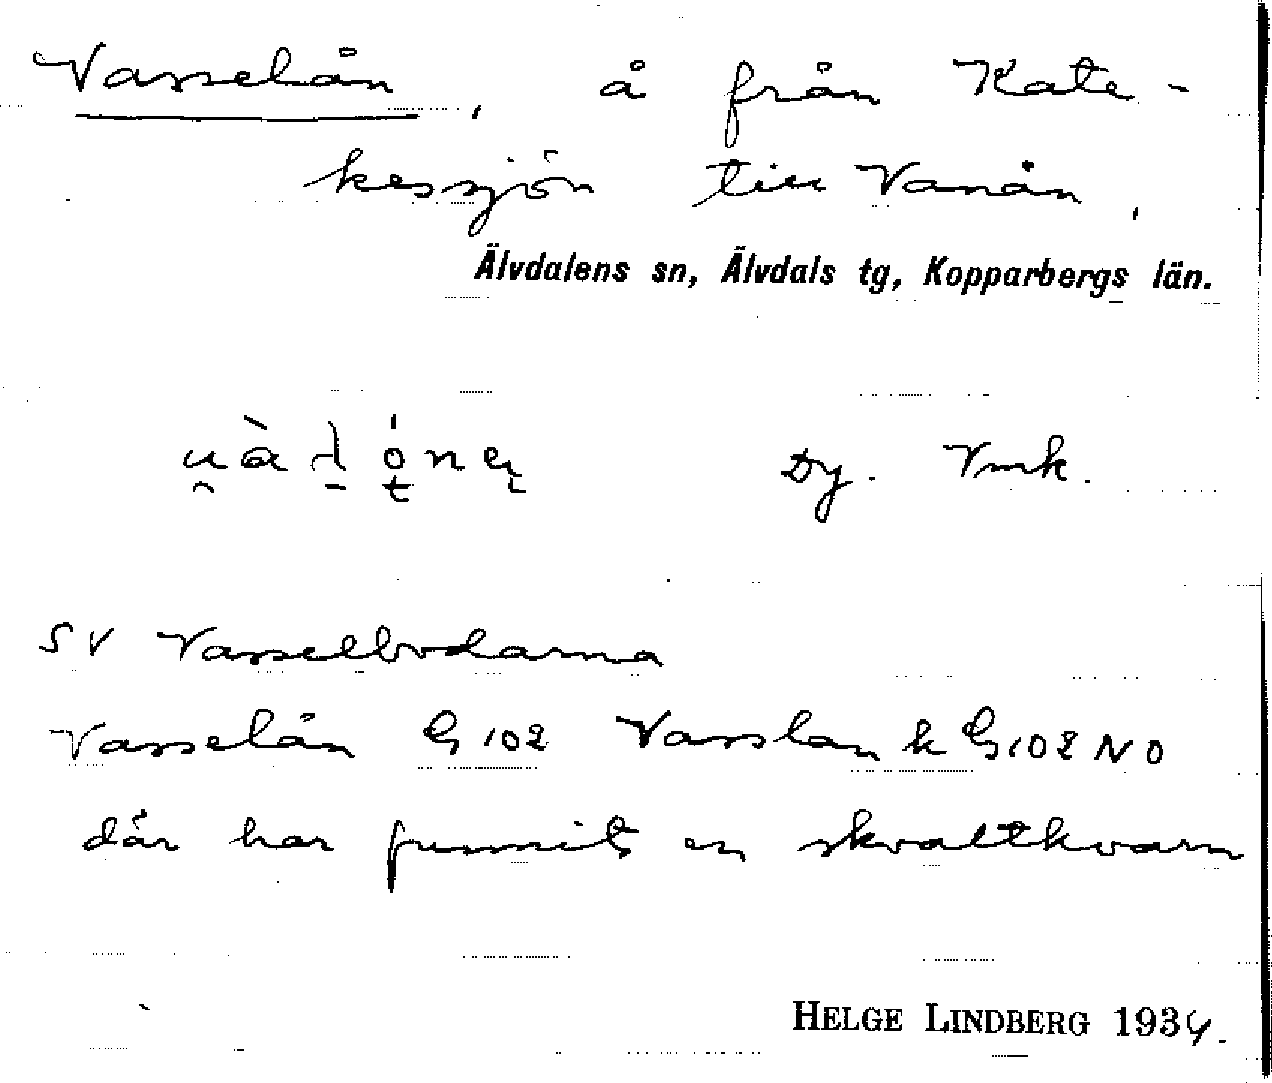 Vasselån, å från Kate-
kessjön till Vanån,
Älvdalens sn, Älvdals tg, Kopparbergs län.
Dy. Vmk.
SV Vasselbodarna
Vasselån G 102 Vasslan k G 102 NO
där har funnits en skvaltkvarn
HELGE LINDBERG 1934.